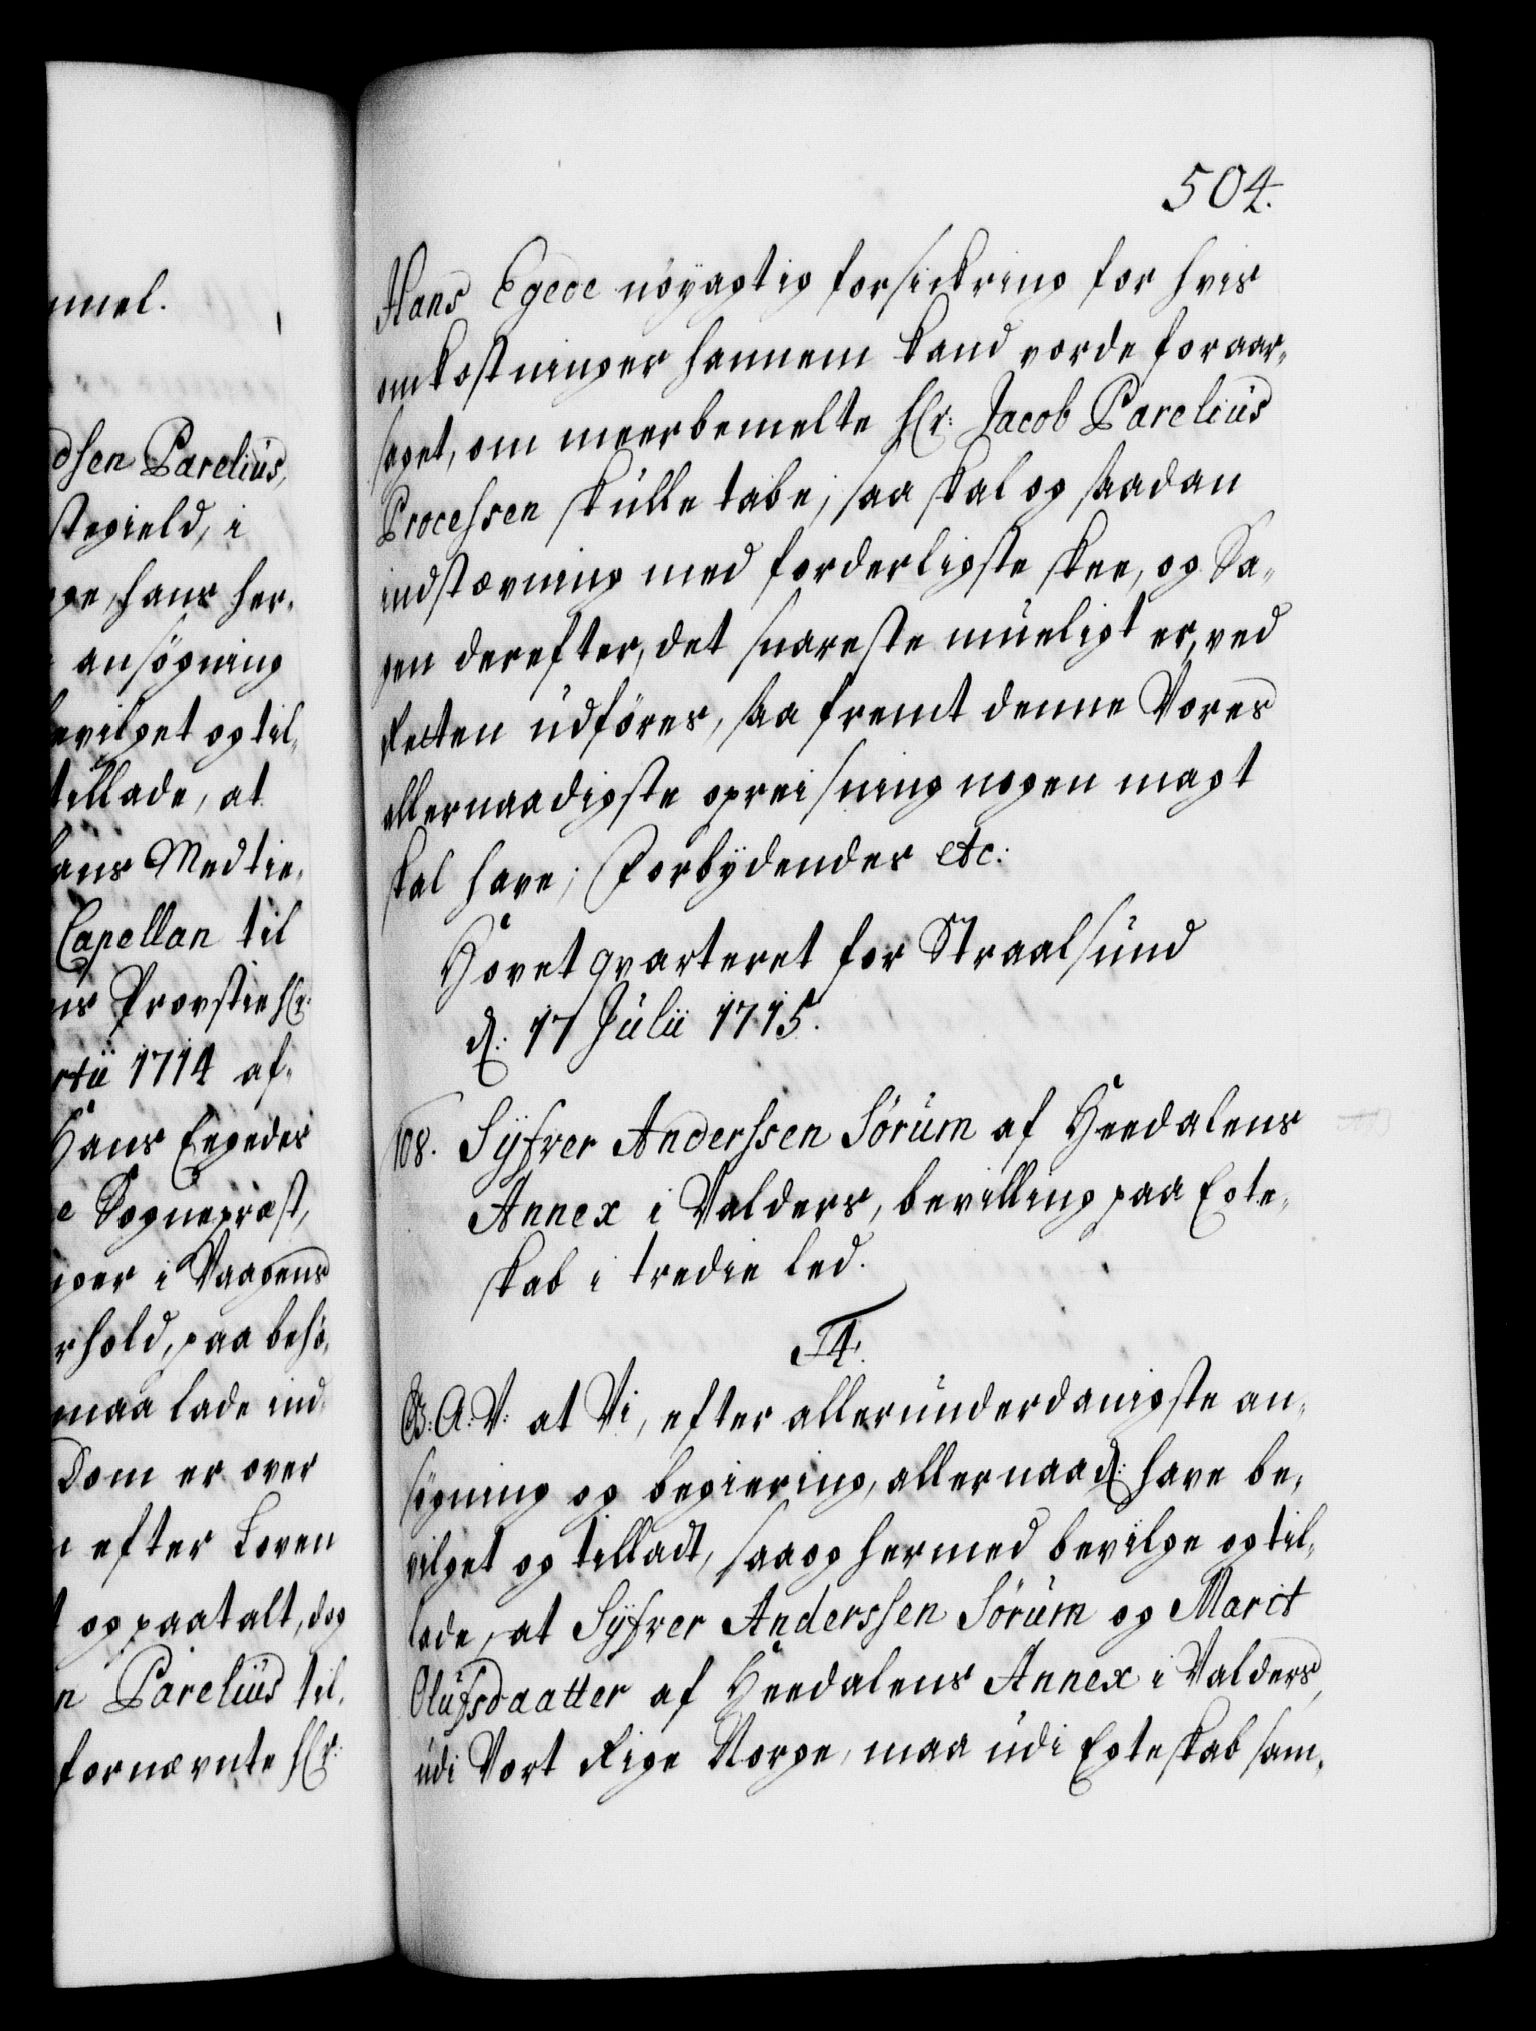 nnel.
dsen Parelius,
stegield, i
ge, hans her,
ansøgning
bevilget og til,
tillade, at
hans Medtie,
Capellan til
ns Provstie Hr:
rtii 1714 af,
Hans Eegedes
e Sognepræst,
nger i Vaagens
rhold, paa behø,
maa lade ind,
Dom er over
efter Loven
t og paatalt, dog
n Parelius til,
fornævnte Hr:
504.
Hans Egede nöÿagtig forsickring for hvis
omkostninger hannem kand vorde foraar,
saget, om meerbemelte Hr: Jacob Parelius
Processen skulle tabe; saa skal og saadan
indstævning med forderligste skee, og Sa,
gen derefter, det snareste müeligt er, ved
Retten udföres, saa fremt denne Vores
allernaadigste opreisning nogen magt
skal have; Forbÿdendes etc:
Hovetqvarteret for Straalsund
d: 17 Julii 1715.
108. Syfver Anderssen Sörum af Heedalens
Annex i Valders, bevilling paa Ecte,
skab i tredie led.
F4.
G: A: V: at Vi, efter allerunderdanigste an,
søgning og begiering, allernaad: have be,
vilget og tilladt, saa og hermed bevilge og til,
lade, at Syfver Anderssen Sörum og Marit
Olufsdaatter af Heedalens Annex i Valders,
udi Vort Rige Norge, maa udi Egteskab sam,